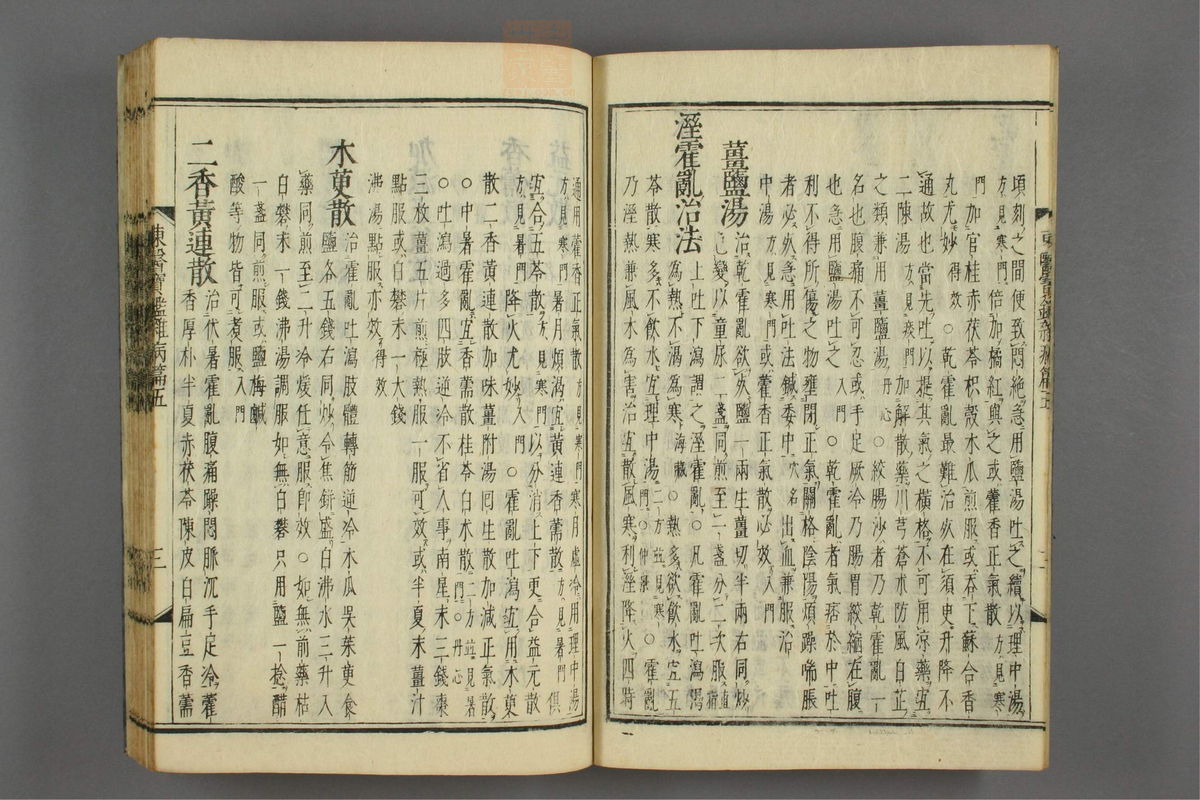 頃刻之間便致悶絶急用鹽湯吐之續以理中湯
方見寒門倍加橘紅與之或藿香正氣散方見寒
門加官桂赤茯苓枳殼水瓜煎服或吞下蘇合香
丸尤妙得效○乾霍亂最難治死在須臾升降不
通故也當先吐以提其氣之橫格不可用涼藥宜
二陳湯方見寒門加解散藥川芎蒼朮防風白芷
之類兼用薑鹽湯丹心○絞腸沙者乃乾霍亂一
名也腹痛不可忍或手足厥冷乃腸胃絞縮在腹
也急用鹽湯吐之入門○乾霍亂者氣痞於中吐
利不得所傷之物壅閉正氣關格陰陽煩躁喘脹
者必死急用吐法鍼委中穴名出血兼服治
中湯方見寒門或藿香正氣散必效入門
薑鹽湯
治乾霍亂欲死鹽一兩生薑切半兩右同炒
色變以童尿二盞同煎至一盞分二次服
濕霍亂治法
上吐下瀉謂之濕霍亂○凡霍亂吐瀉渴
爲熱不渴爲寒海藏○熱多欲飮水宜五
苓散寒多不飮水宜理中湯二方並見寒門○仲景○霍亂
乃濕熱兼風木爲害治宜散風寒利濕降火四時
通用藿香正氣散方見寒門寒月虛冷用理中湯
方見寒門暑月煩渴宜黃連香薷散方見暑門俱
宜合五苓散方見寒門以分消上下更合益元散
方見暑門降火尤妙入門○霍亂吐瀉宜用木萸
散二香黃連散加味薑附湯回生散加減正氣散
○中暑霍亂宜香薷散桂苓白朮散二方並見暑門○丹心
○吐瀉過多四肢逆冷不省人事南星末三錢棗
三枚薑五片煎極熱服一服可效或半夏末薑汁
點服或白礬末一大錢
沸湯點服亦效得效
木萸散
治霍亂吐瀉肢體轉筋逆冷木瓜吳茱萸食
鹽各五錢右同炒令焦鉼盛白沸水三升入
藥同煎至二升冷煖任意服卽效○如無前藥枯
白礬末一錢沸湯調服如無白礬只用鹽一捻醋
一盞同煎服或鹽梅鹹
酸等物皆可煮服入門
二香黃連散
治伏暑霍亂腹痛躁悶脈沉手足冷藿
香厚朴半夏赤茯苓陳皮白扁豆香薷
東醫寶鑑雜病篇五
三